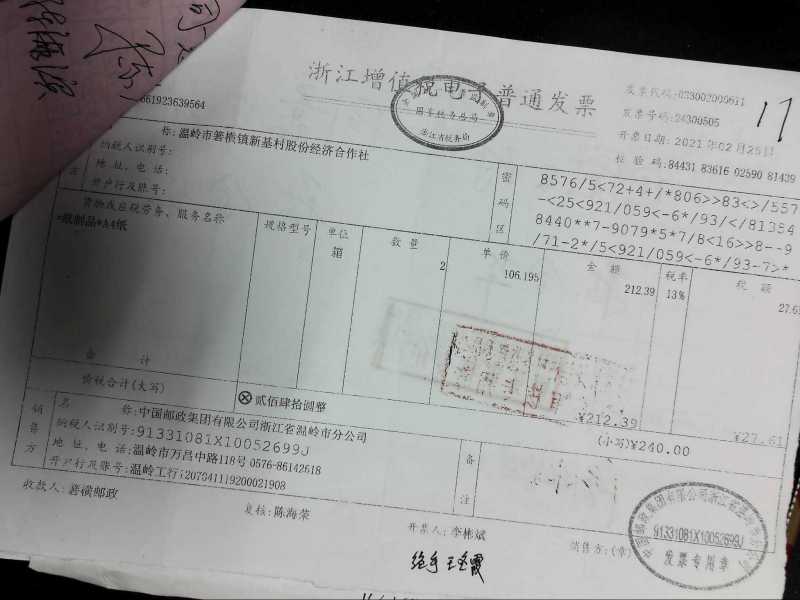 浙江增值税电子普通发票
国家税务总局
浙江省税务局
661923639564
发票代码:033002000611
发票号码:24300505
开票日期:2021年02月25日
校验码:84431 83616 02590 81439
17
称:温岭市箬横镇新基村股份经济合作社
纳税人识别号:
地址、电话:
开户行及账号:
密码区
8576/5<72+4+/*806>>83<>/557
-<25<921/059<-6*/93/</81354
8440**7-9079*5*7/8<16>>8--9
/71-2*/5<921/059<-6*/93-7>*
货物或应税劳务、服务名称 规格型号 单位 数量 单价 金额 税率 税额
*纸制品*A4纸 箱 2 106.195 212.39 13% 27.61
合计 ¥212.39 ¥27.61
价税合计(大写) ⊗贰佰肆拾圆整 (小写)¥240.00
销售方
名称:中国邮政集团有限公司浙江省温岭市分公司
纳税人识别号:91331081X10052699J
地址、电话:温岭市万昌中路118号 0576-86142618
开户行及账号:温岭工行;207841119200021908
备注
收款人:箬横邮政 复核:陈海荣 开票人:李彬斌 销售方:(章)
91331081X10052699J
发票专用章